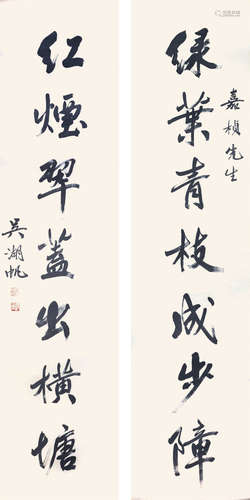 嘉楨先生
绿葉青枝成步障
红煙翠蓋出橫塘
吳湖帆